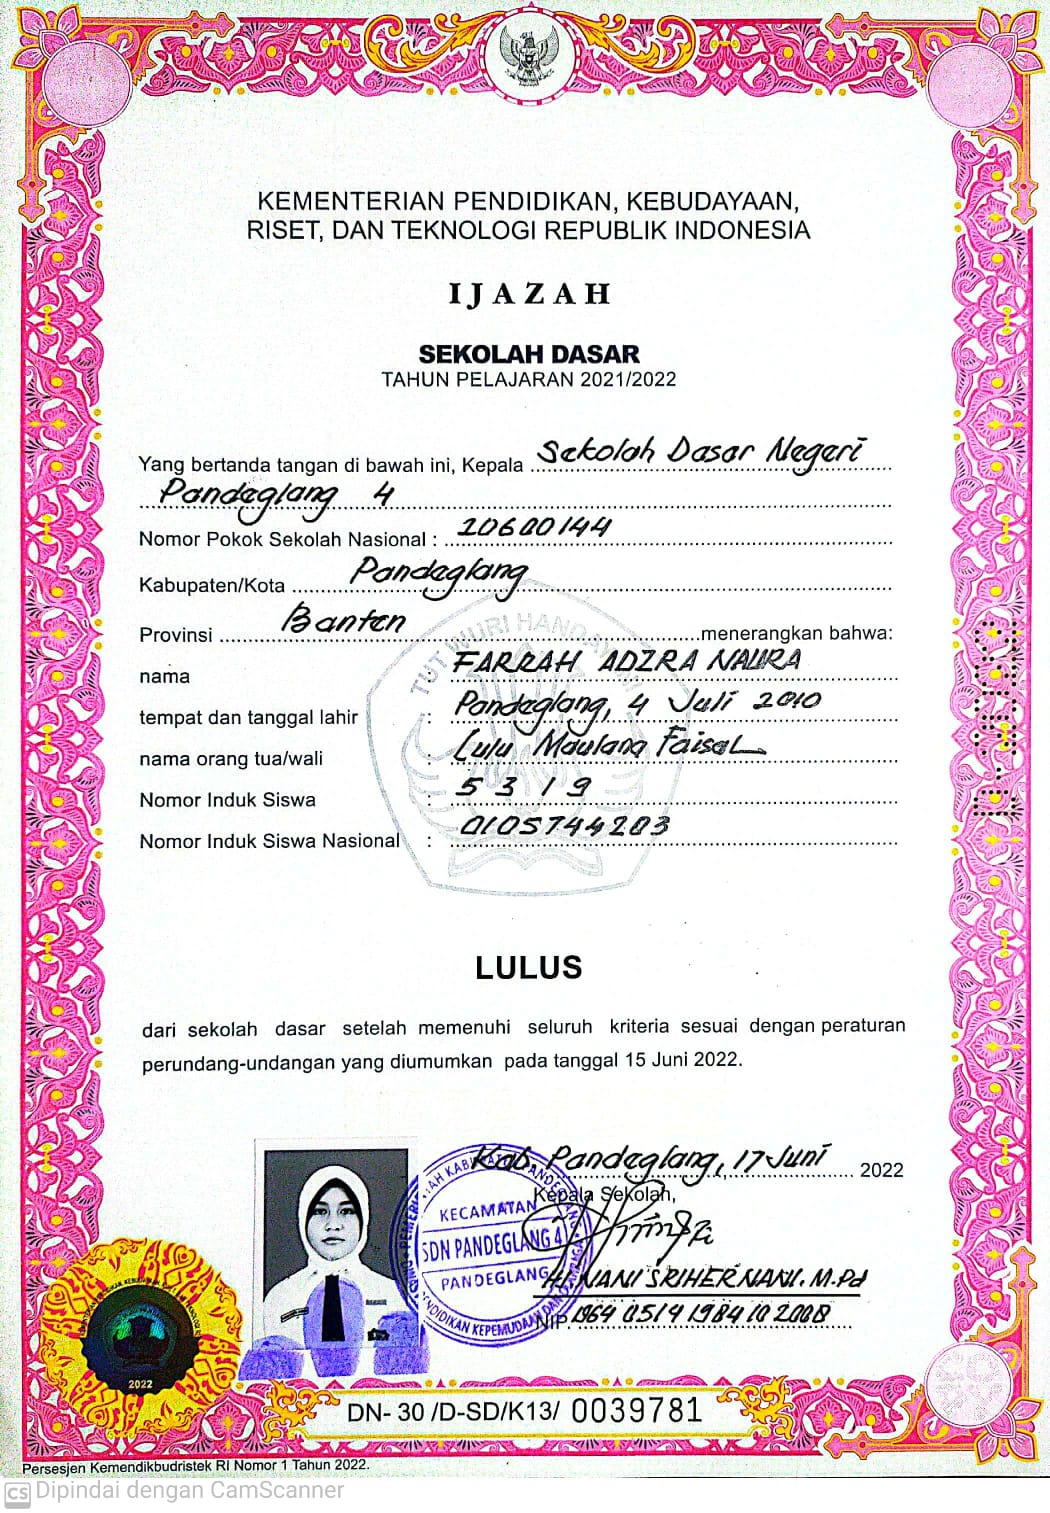 KEMENTERIAN PENDIDIKAN, KEBUDAYAAN,
RISET, DAN TEKNOLOGI REPUBLIK INDONESIA
IJAZAH
SEKOLAH DASAR
TAHUN PELAJARAN 2021/2022
Yang bertanda tangan di bawah ini, Kepala Sekolah Dasar Negeri
Pandeglang 4
Nomor Pokok Sekolah Nasional : 20600144
Kabupaten/Kota Pandeglang
Provinsi Banten menerangkan bahwa:
nama : FARZAH ADZRA NAURA
tempat dan tanggal lahir : Pandeglang, 4 Juli 2010
nama orang tua/wali : Lulu Maulana Faisal
Nomor Induk Siswa : 5319
Nomor Induk Siswa Nasional : 0105744203
TUT WURI HANDAYANI
LULUS
dari sekolah dasar setelah memenuhi seluruh kriteria sesuai dengan peraturan
perundang-undangan yang diumumkan pada tanggal 15 Juni 2022.
Kab. Pandeglang, 17 Juni 2022
Kepala Sekolah,
KECAMATAN
SDN PANDEGLANG 4
PANDEGLANG
SRIHERNANI. M.Pd
NIP. 19640514 198410 2008
2022
DN- 30 /D-SD/K13/ 0039781
Persesjen Kemendikbudristek RI Nomor 1 Tahun 2022.
CS Dipindai dengan CamScanner